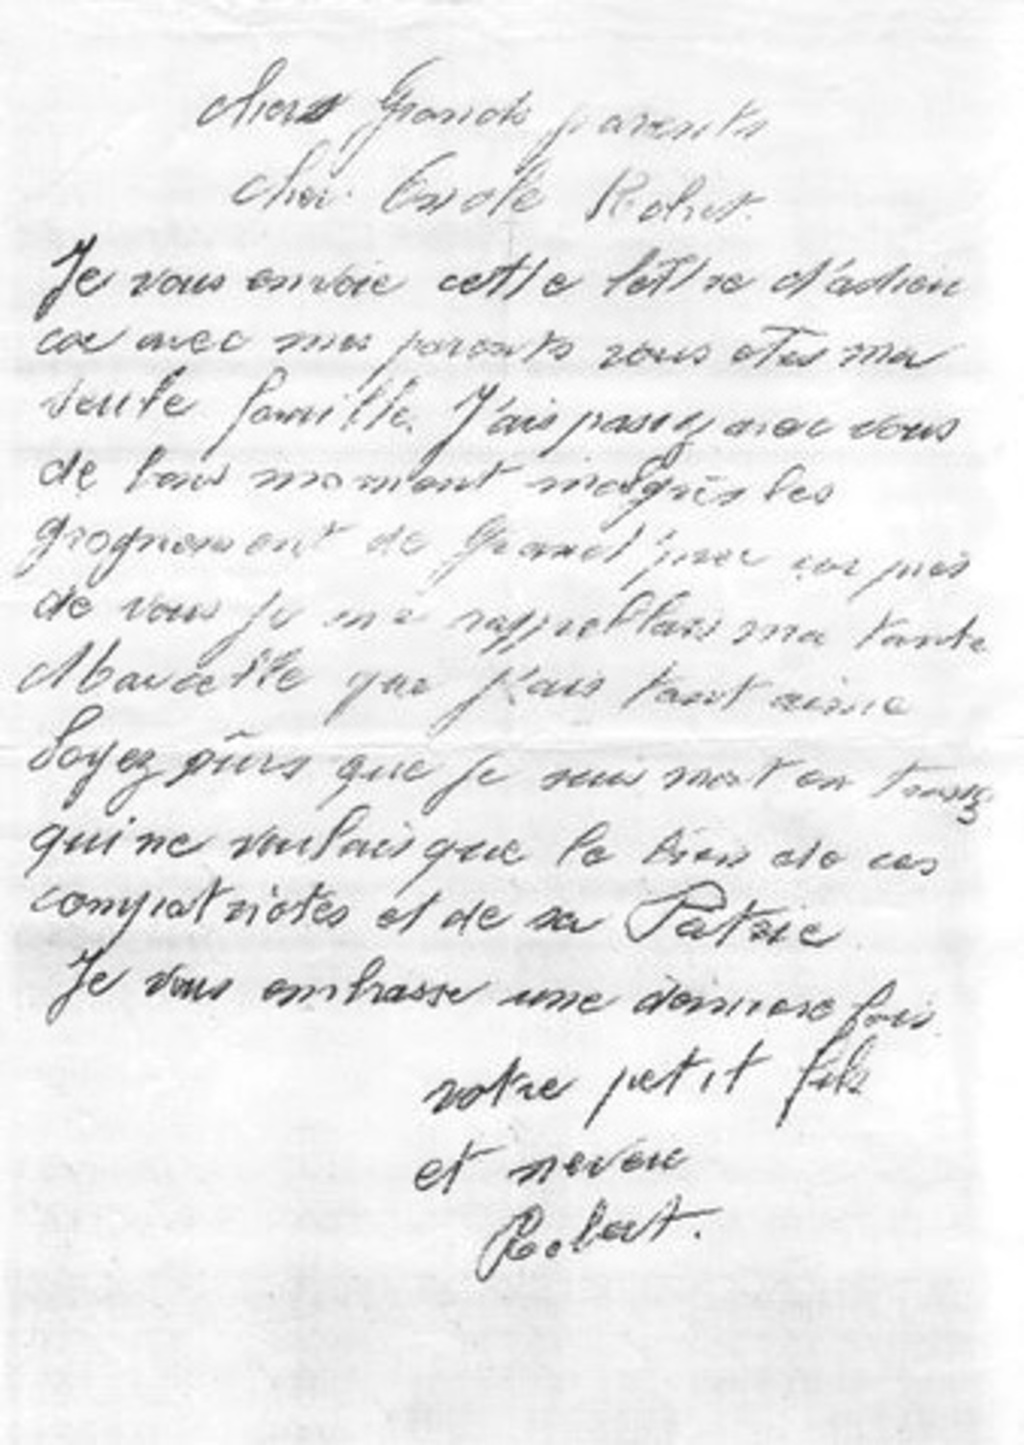 chers Grands parents
cher Oncle Robert.
Je vous envoie cette lettre d'adieu
car avec mes parents vous etes ma
seule famille. J'ais passez avec vous
de bons moment malgrès les
grognement de Grand père car près
de vous je me rappellais ma tante
Marcelle que j'ais tant aimé
Soyez sûrs que je suis mort en
qui ne voulais que le bien de ces
compatriotes et de sa Patrie
Je vous embrasse une derniere fois
votre petit fils
et neveu
Robert.